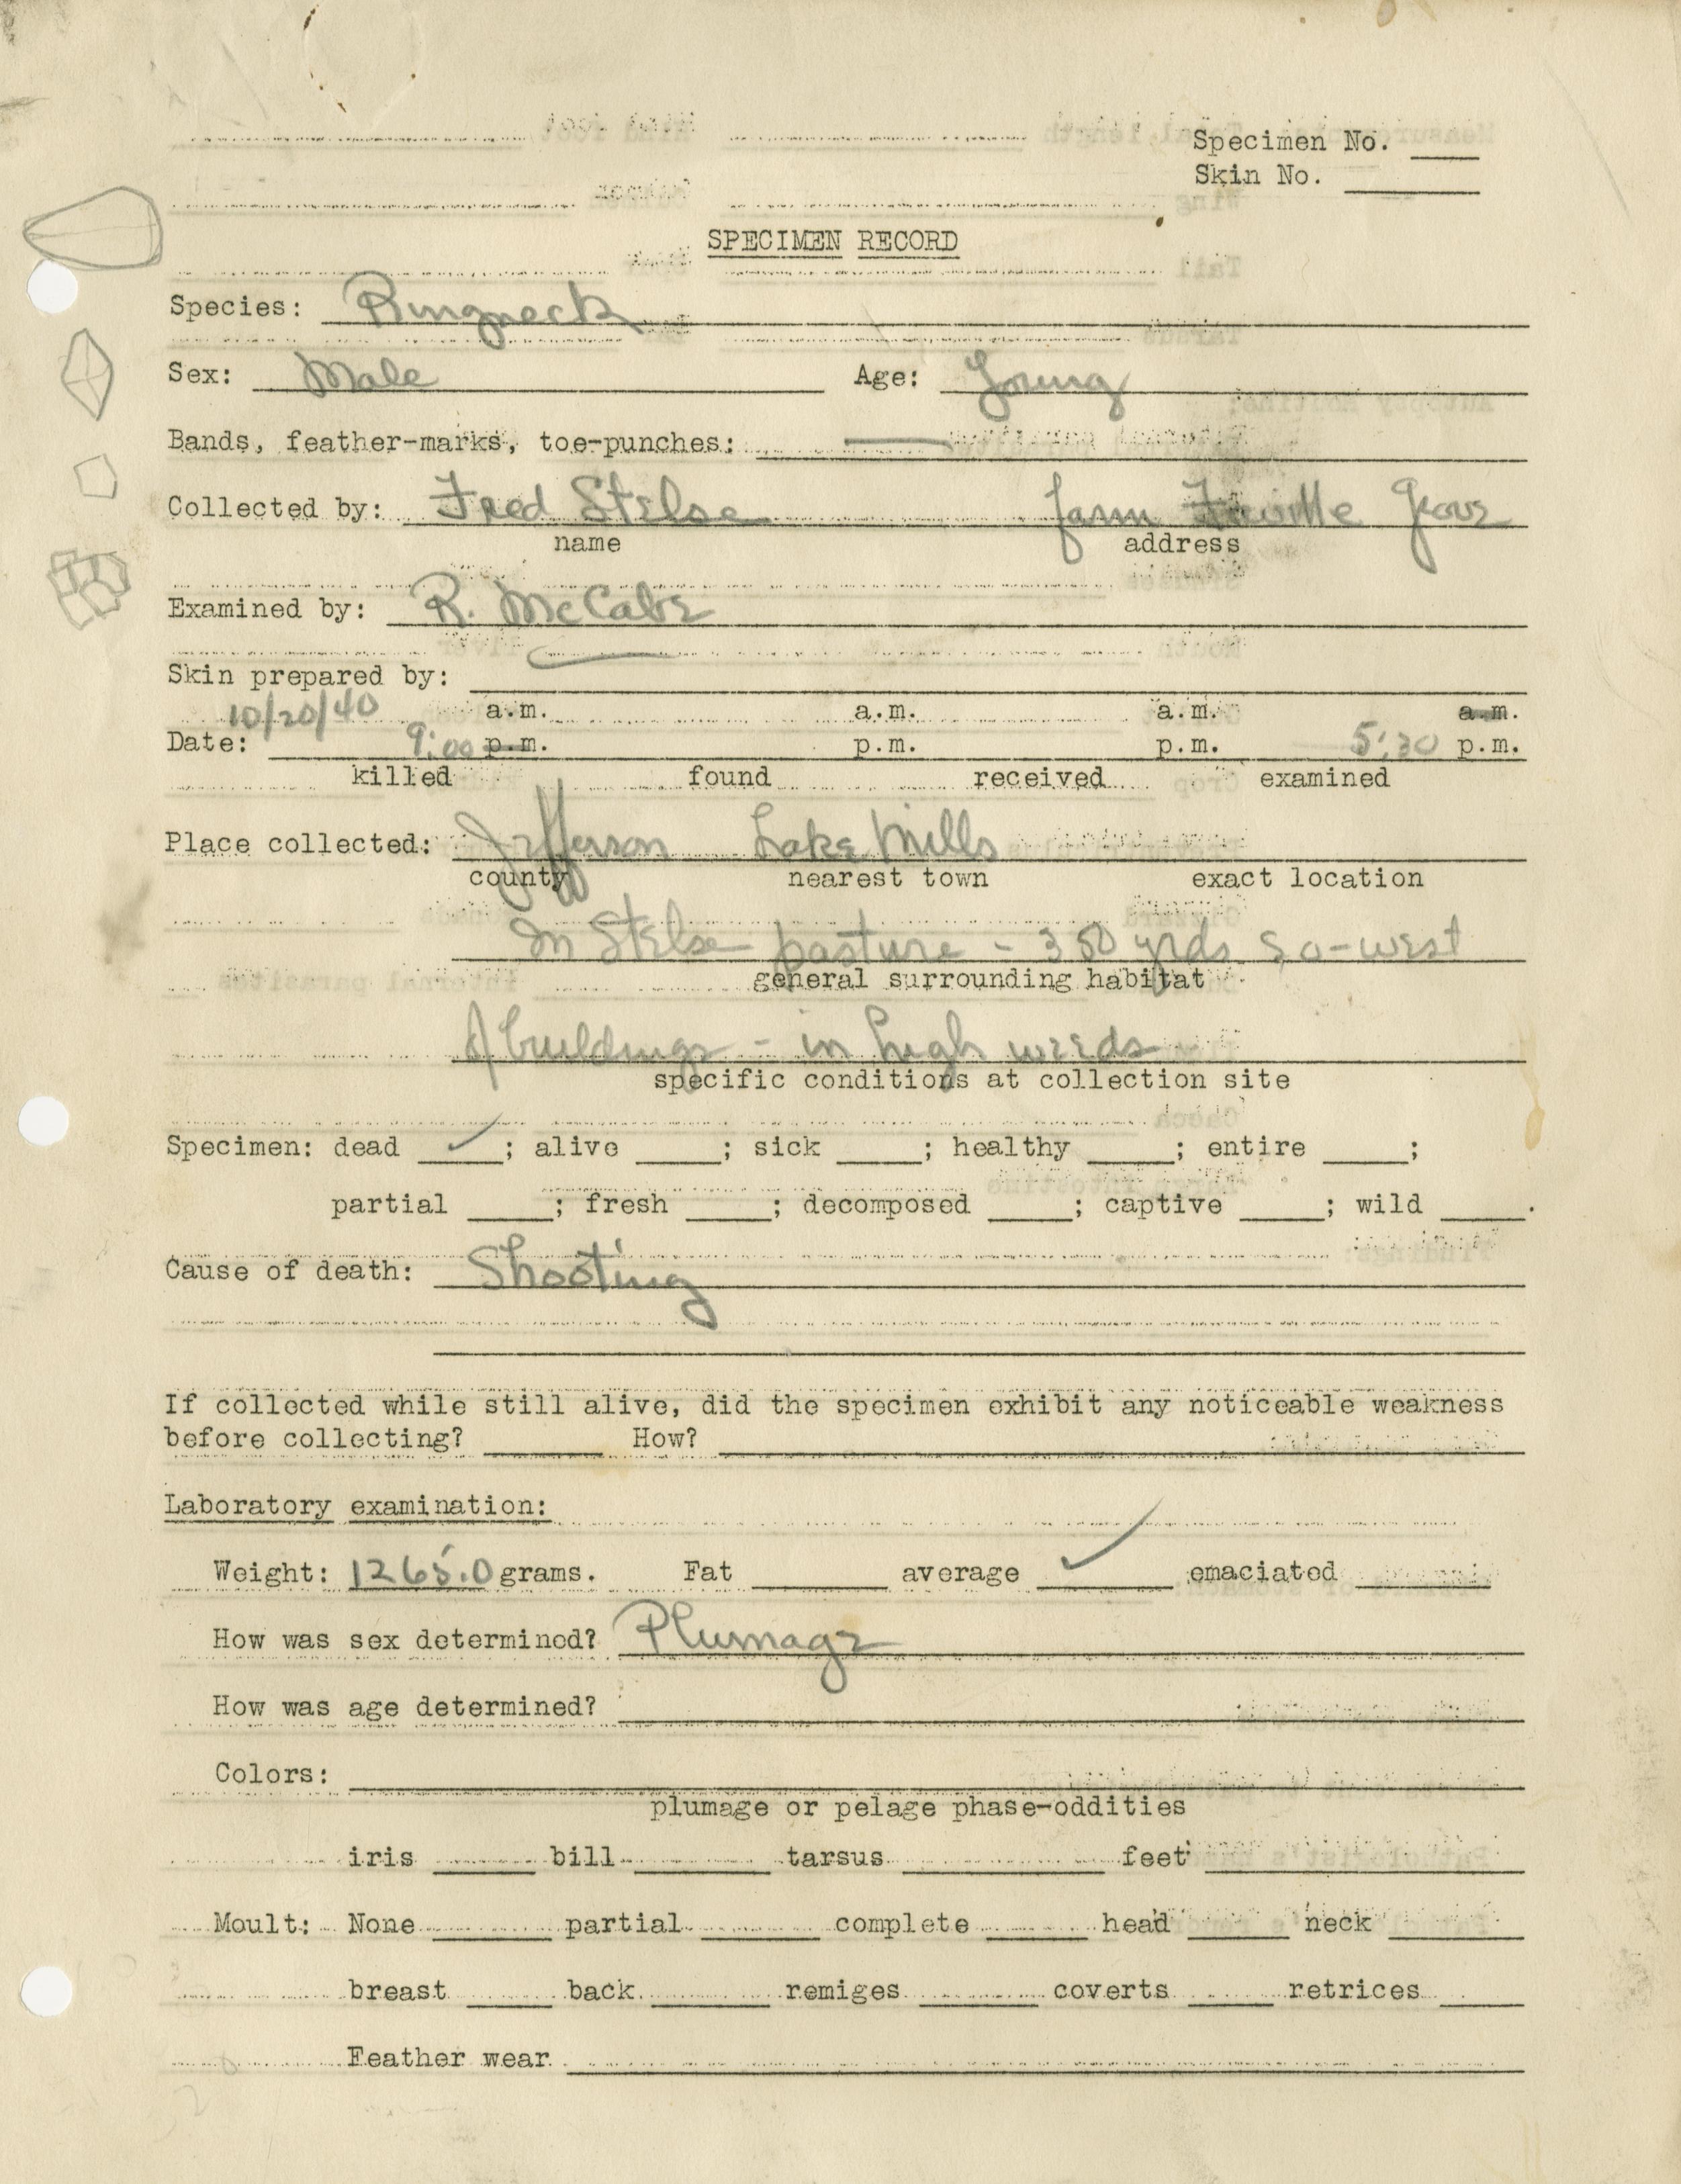 Specimen No. ____
Skin No. ____
SPECIMEN RECORD
Species: Ringneck
Sex: Male Age: Young
Bands, feather-marks, toe-punches: —
Collected by: Fred Stelse farm Faville Grove
name address
Examined by: R. McCabe
Skin prepared by:
10/20/40 a.m. a.m. a.m. a.m.
Date: 9:00 p.m. p.m. p.m. 5:30 p.m.
killed found received examined
Place collected: Jefferson Lake Mills
county nearest town exact location
In Stelse pasture - 350 yrds so-west
general surrounding habitat
of buildings - in high weeds
specific conditions at collection site
Specimen: dead ✓; alive ____; sick ____; healthy ____; entire ____;
partial ____; fresh ____; decomposed ____; captive ____; wild ____.
Cause of death: Shooting
If collected while still alive, did the specimen exhibit any noticeable weakness
before collecting? ____ How? ____
Laboratory examination:
Weight: 1265.0 grams. Fat ____ average ✓ emaciated ____
How was sex determined? Plumage
How was age determined?
Colors:
plumage or pelage phase-oddities
iris ____ bill ____ tarsus ____ feet ____
Moult: None ____ partial ____ complete ____ head ____ neck ____
breast ____ back ____ remiges ____ coverts ____ retrices ____
Feather wear ____